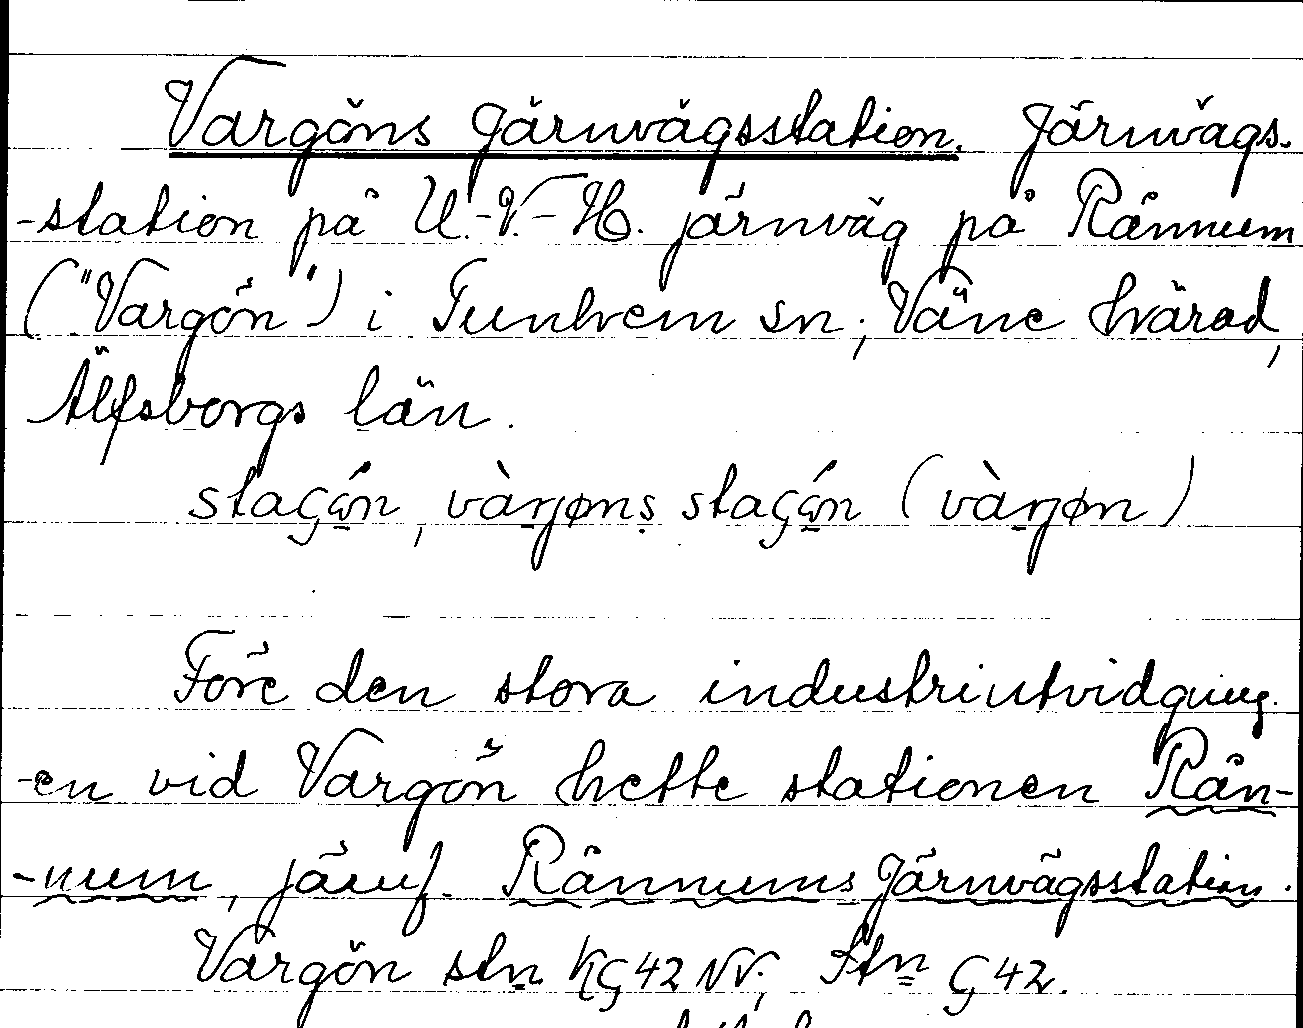 Vargöns Järnvägsstation. Järnvägs-
-station på U.-V.-H. järnväg på Rännum
("Vargön") i Tunhem sn; Väne härad,
Älfsborgs län.
Före den stora industriutvidgning-
-en vid Vargön hette stationen Rän-
-num, jämf. Rännums Järnvägsstation.
Vargön stn KG42 NV; Stn G42.